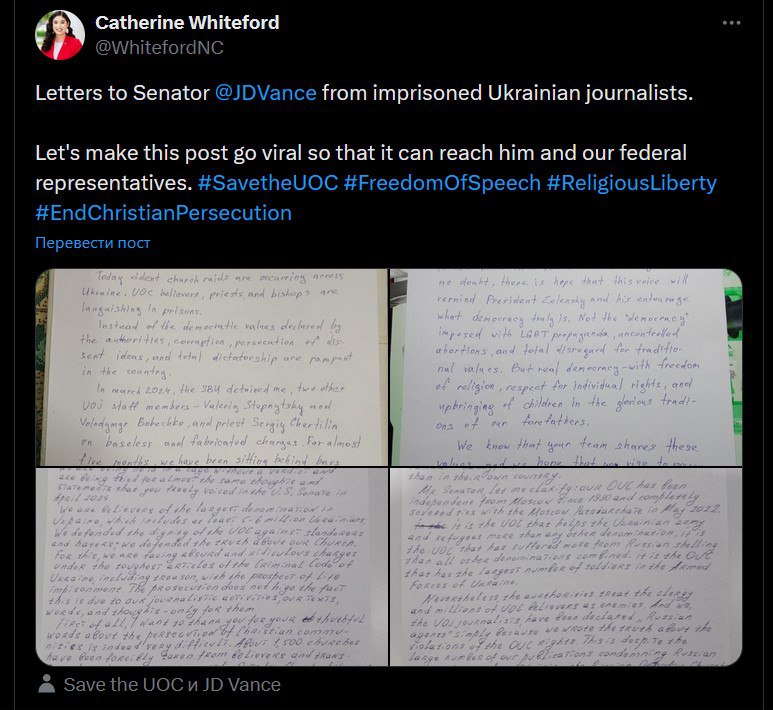 Catherine Whiteford
@WhitefordNC
Letters to Senator @JDVance from imprisoned Ukrainian journalists.
Let's make this post go viral so that it can reach him and our federal
representatives. #SavetheUOC #FreedomOfSpeech #ReligiousLiberty
#EndChristianPersecution
Перевести пост
Today violent church raids are occurring across
Ukraine. UOC believers, priests and bishops are
languishing in prisons.
Instead of the democratic values declared by
the authorities, corruption, persecution of dis-
sent ideas, and total dictatorship are rampant
in the country.
In march 2024, the SBU detained me, two other
UOJ staff members – Valeriy Stupnytsky and
Volodymyr Bobechko, and priest Sergiy Chertilin
on baseless and fabricated charges. For almost
five months, we have been sitting behind bars
no doubt, there is hope that this voice will
remind President Zelensky and his entourage
what democracy truly is. Not the "democracy"
imposed with LGBT propaganda, uncontrolled
abortions, and total disregard for traditio-
nal values. But real democracy – with freedom
of religion, respect for individual rights, and
upbringing of children in the glorious traditi-
ons of our forefathers.
We know that your team shares these
values, and we hope that
without a verdict and
are being tried for almost the same thoughts and
statements that you freely voiced in the U.S. Senate in
April 2024
We are believers of the largest denomination in
Ukraine, which includes at least 5-6 million Ukrainians.
We defended the dignity of the UOC against slanderers
and haters; we defended the truth about our Church.
For this, we are facing absurd and ridiculous charges
under the toughest articles of the Criminal Code of
Ukraine, including treason, with the prospect of life
imprisonment. The prosecution does not hide the fact
this is due to our journalistic activities, our texts,
words, and thoughts – only for them
First of all, I want to thank you for your truthful
words about the persecution of Christian commu-
nities is indeed very difficult. About 1500 churches
have been forcibly taken from believers and trans-
than in their own country.
Mr. Senator, let me clarify: our UOC has been
independent from Moscow since 1990 and completely
severed ties with the Moscow Patriarchate in May 2022.
It is the UOC that helps the Ukrainian army
and refugees more than any other denomination. It is
the UOC that has suffered more from Russian shelling
than all other denominations combined. It is the UOC
that has the largest number of soldiers in the Armed
Forces of Ukraine.
Nevertheless, the authorities treat the clergy
and millions of UOC believers as enemies. And we,
the UOJ journalists, have been declared „Russian
agents" simply because we wrote the truth about the
violations of the UOC rights. This is despite the
large number of our publications condemning Russian
Save the UOC и JD Vance